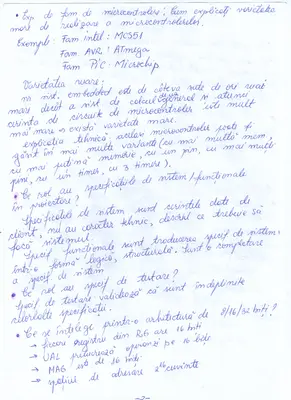 • Ex. de fam de microcontrolere; Cum explicați varietatea
mare de realizare a microcontrolerelor.
Exemple: Fam. intel: MC551
Fam. AVR: ATmega
Fam PIC: Microchip
Varietatea mare:
nr. sist. embedded este de câteva sute de ori mai
mare decât a sist. de calcul general și atunci
cerința de circuite de microcontrolere este mult
mai mare → există varietate mare.
explicația tehnică: același microcontroler poate fi
găsit în mai multe variante (cu mai multă mem,
cu mai puțină memorie, cu un pin, cu mai mulți
pini, cu un timer, cu 3 timere).
• Ce rol au specificațiile de sistem/funcționale
în proiectare?
Specificațiile de sistem sunt cerințele date de
client, nu au caracter tehnic, descriu ce trebuie să
facă sistemul.
Specif. funcționale sunt traducerea specif de sistem,
într-o formă logică, structurată. Sunt o completare
a specif de sistem
• Ce rol au specif de testare?
Specif de testare validează că sunt îndeplinite
celelalte specificații.
• Ce se înțelege printr-o arhitectură de 8/16/32 biți?
→ fiecare registru din RG are 16 biți
→ UAL prelucrează operanzi pe 16 biți
→ MAG este de 16 biți
→ spațiul de adresare 2^16 cuvinte
-2-